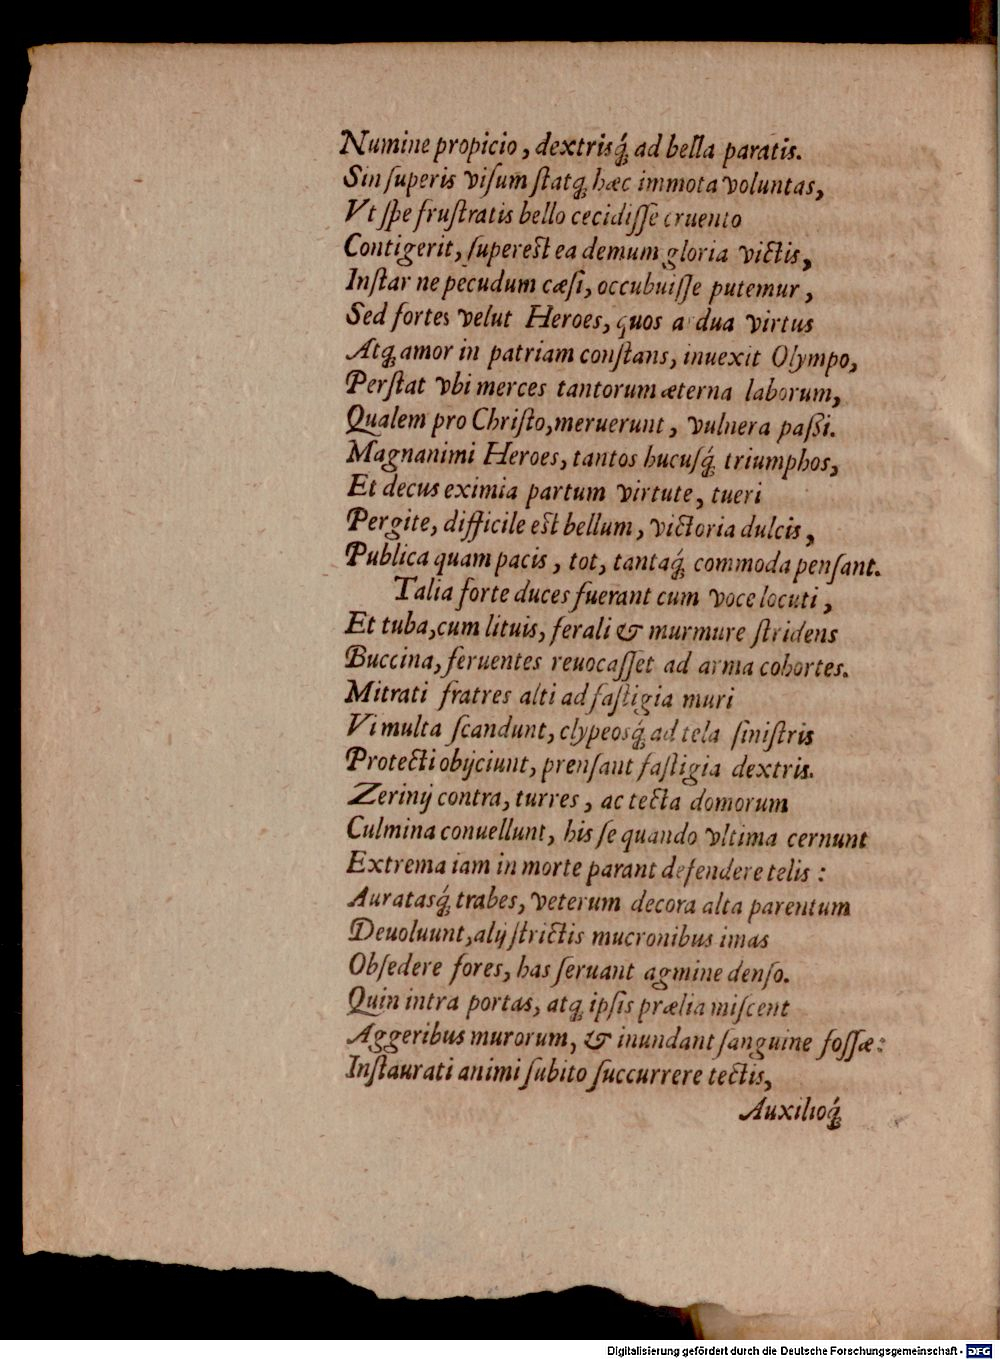 Numine propicio, dextrisq́; ad bella paratis.
Sin ſuperis viſum ſtatq; hæc immota voluntas,
Vt ſpe fruſtratis bello cecidiſſe cruento
Contigerit, ſupereſt ea demum gloria victis,
Inſtar ne pecudum cæſi, occubuiſſe putemur,
Sed fortes velut Heroes, quos ardua virtus
Atq; amor in patriam conſtans, inuexit Olympo,
Perſtat vbi merces tantorum æterna laborum,
Qualem pro Chriſto, meruerunt, vulnera paßi.
Magnanimi Heroes, tantos hucuſq́; triumphos,
Et decus eximia partum virtute, tueri
Pergite, difficile eſt bellum, victoria dulcis,
Publica quam pacis, tot, tantaq́; commoda penſant.
Talia forte duces fuerant cum voce locuti,
Et tuba, cum lituis, ferali & murmure ſtridens
Buccina, feruentes reuocaſſet ad arma cohortes.
Mitrati fratres alti ad faſtigia muri
Vi multa ſcandunt, clypeosq́; ad tela ſiniſtris
Protecti obijciunt, prenſant faſtigia dextris.
Zerinij contra, turres, ac tecta domorum
Culmina conuellunt, his ſe quando vltima cernunt
Extrema iam in morte parant defendere telis:
Auratasq́; trabes, veterum decora alta parentum
Deuoluunt, alij ſtrictis mucronibus imas
Obſedere fores, has ſeruant agmine denſo.
Quin intra portas, atq; ipſis prælia miſcent
Aggeribus murorum, & inundant ſanguine foſſæ:
Inſtaurati animi ſubito ſuccurrere tectis,
Auxilioq́;
Digitalisierung gefördert durch die Deutsche Forschungsgemeinschaft - DFG